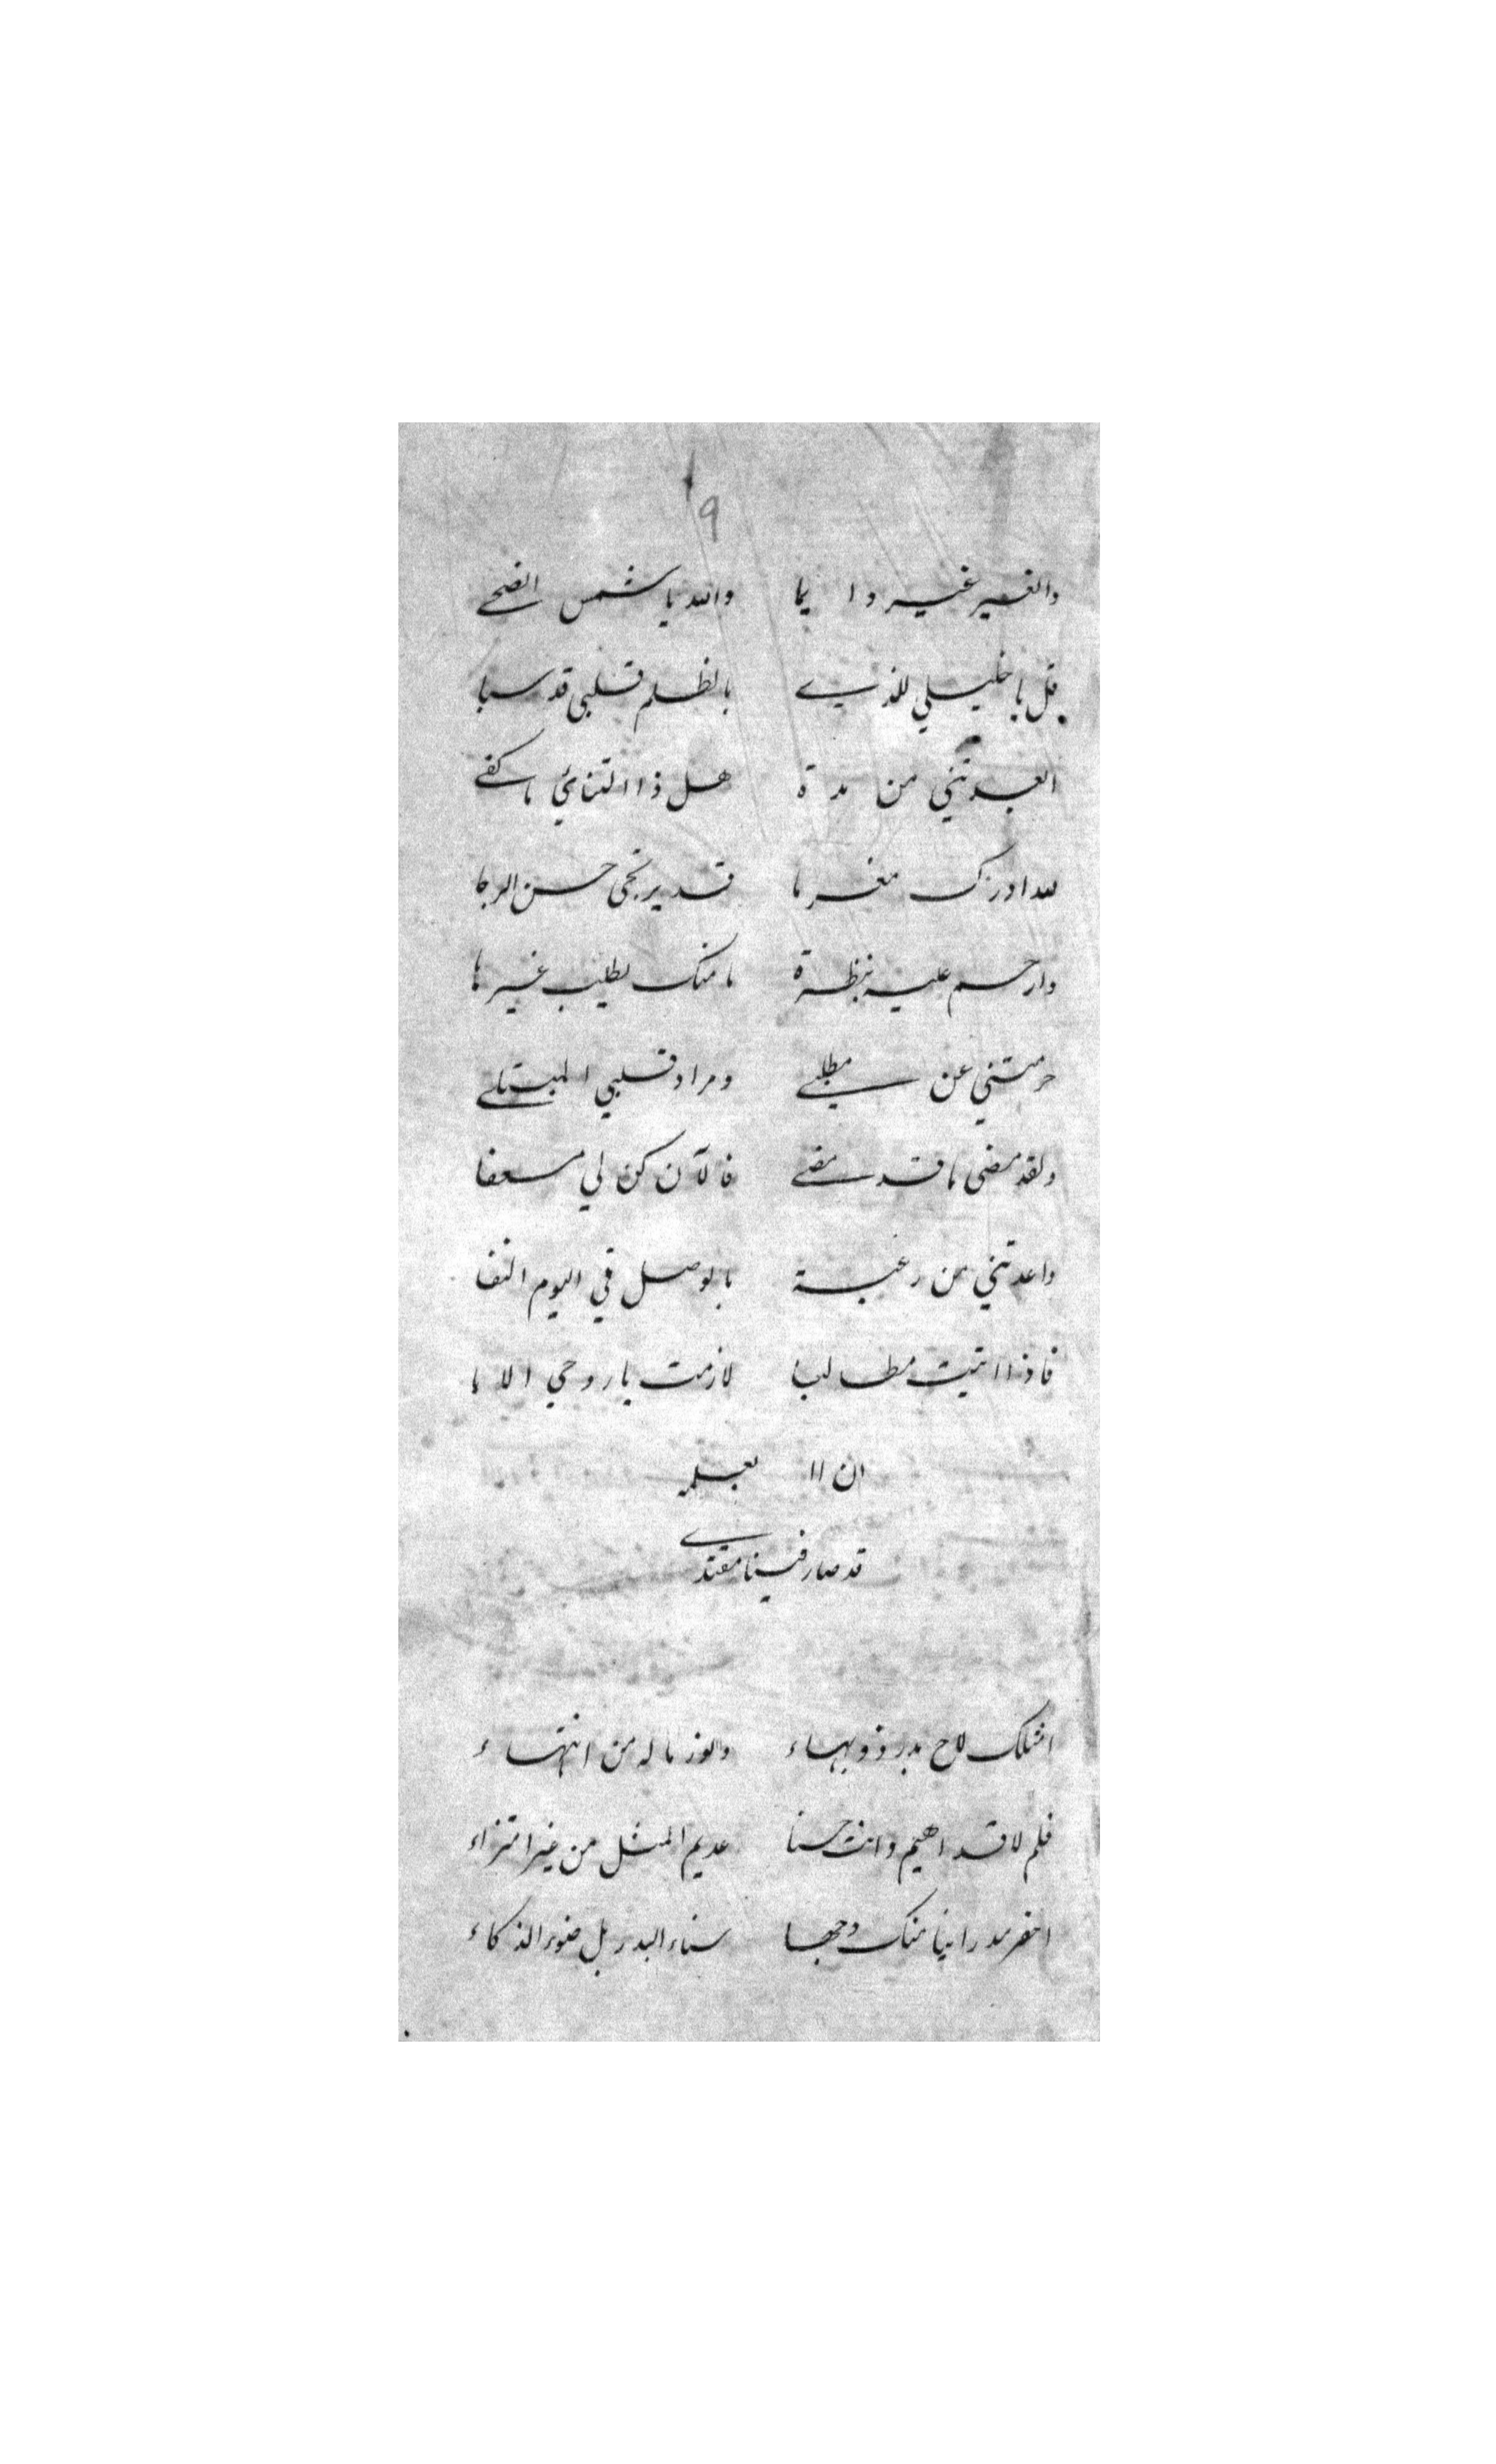 ٩
والغير غير دايما والله يا شمس الضحى
قل يا خليلي للذي بالظلم قلبي قد سبا
ابعدتني من مدة هل ذا التنائي ما كفى
لله ادرك مغرما قد يرتجى حسن الرجا
وارحم عليه بنظرة ما منك يطلب غيرها
حرمتني عن مطلبي ومراد قلبي المبتلى
ولقد مضى ما قد مضى فالآن كن لي مسعفا
واعدتني من رغبة بالوصل في اليوم
فاذا اتيت مطالبا لازمت يا روحي الا با
ان
قد صار فينا مقتدى
امثلك لاح بدر ذو بهاء ما له من انتهاء
فلم لا قد اهيم وانت حسنا عديم المثل من غير امتراء
راينا منك وجها سناء البدر بل ضوء الذكاء